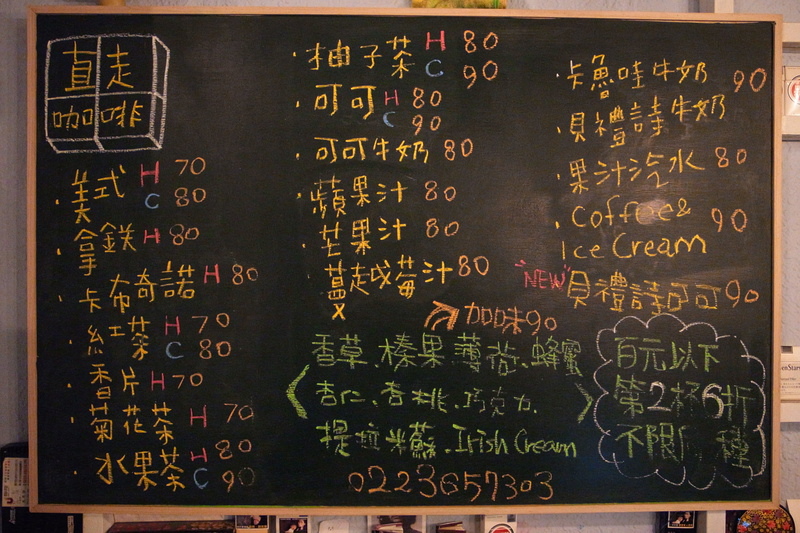 直走
咖啡
美式 H 70
C 80
拿鉄 H 80
卡布奇諾 H 80
紅茶 H 70
C 80
香片 H 70
菊花茶 H 70
水果茶 H 80
C 90
柚子茶 H 80
C 90
可可 H 80
C 90
可可牛奶 80
蘋果汁 80
芒果汁 80
蔓越莓汁 80
加味90
香草.榛果.薄荷.蜂蜜
杏仁.杏桃.巧克力.
提拉米蘇.Irish Cream
0223657303
卡魯哇牛奶 90
貝禮詩牛奶
果汁汽水 80
Coffee &
Ice Cream 90
"NEW" 貝禮詩可可 90
百元以下
第2杯6折
不限 種